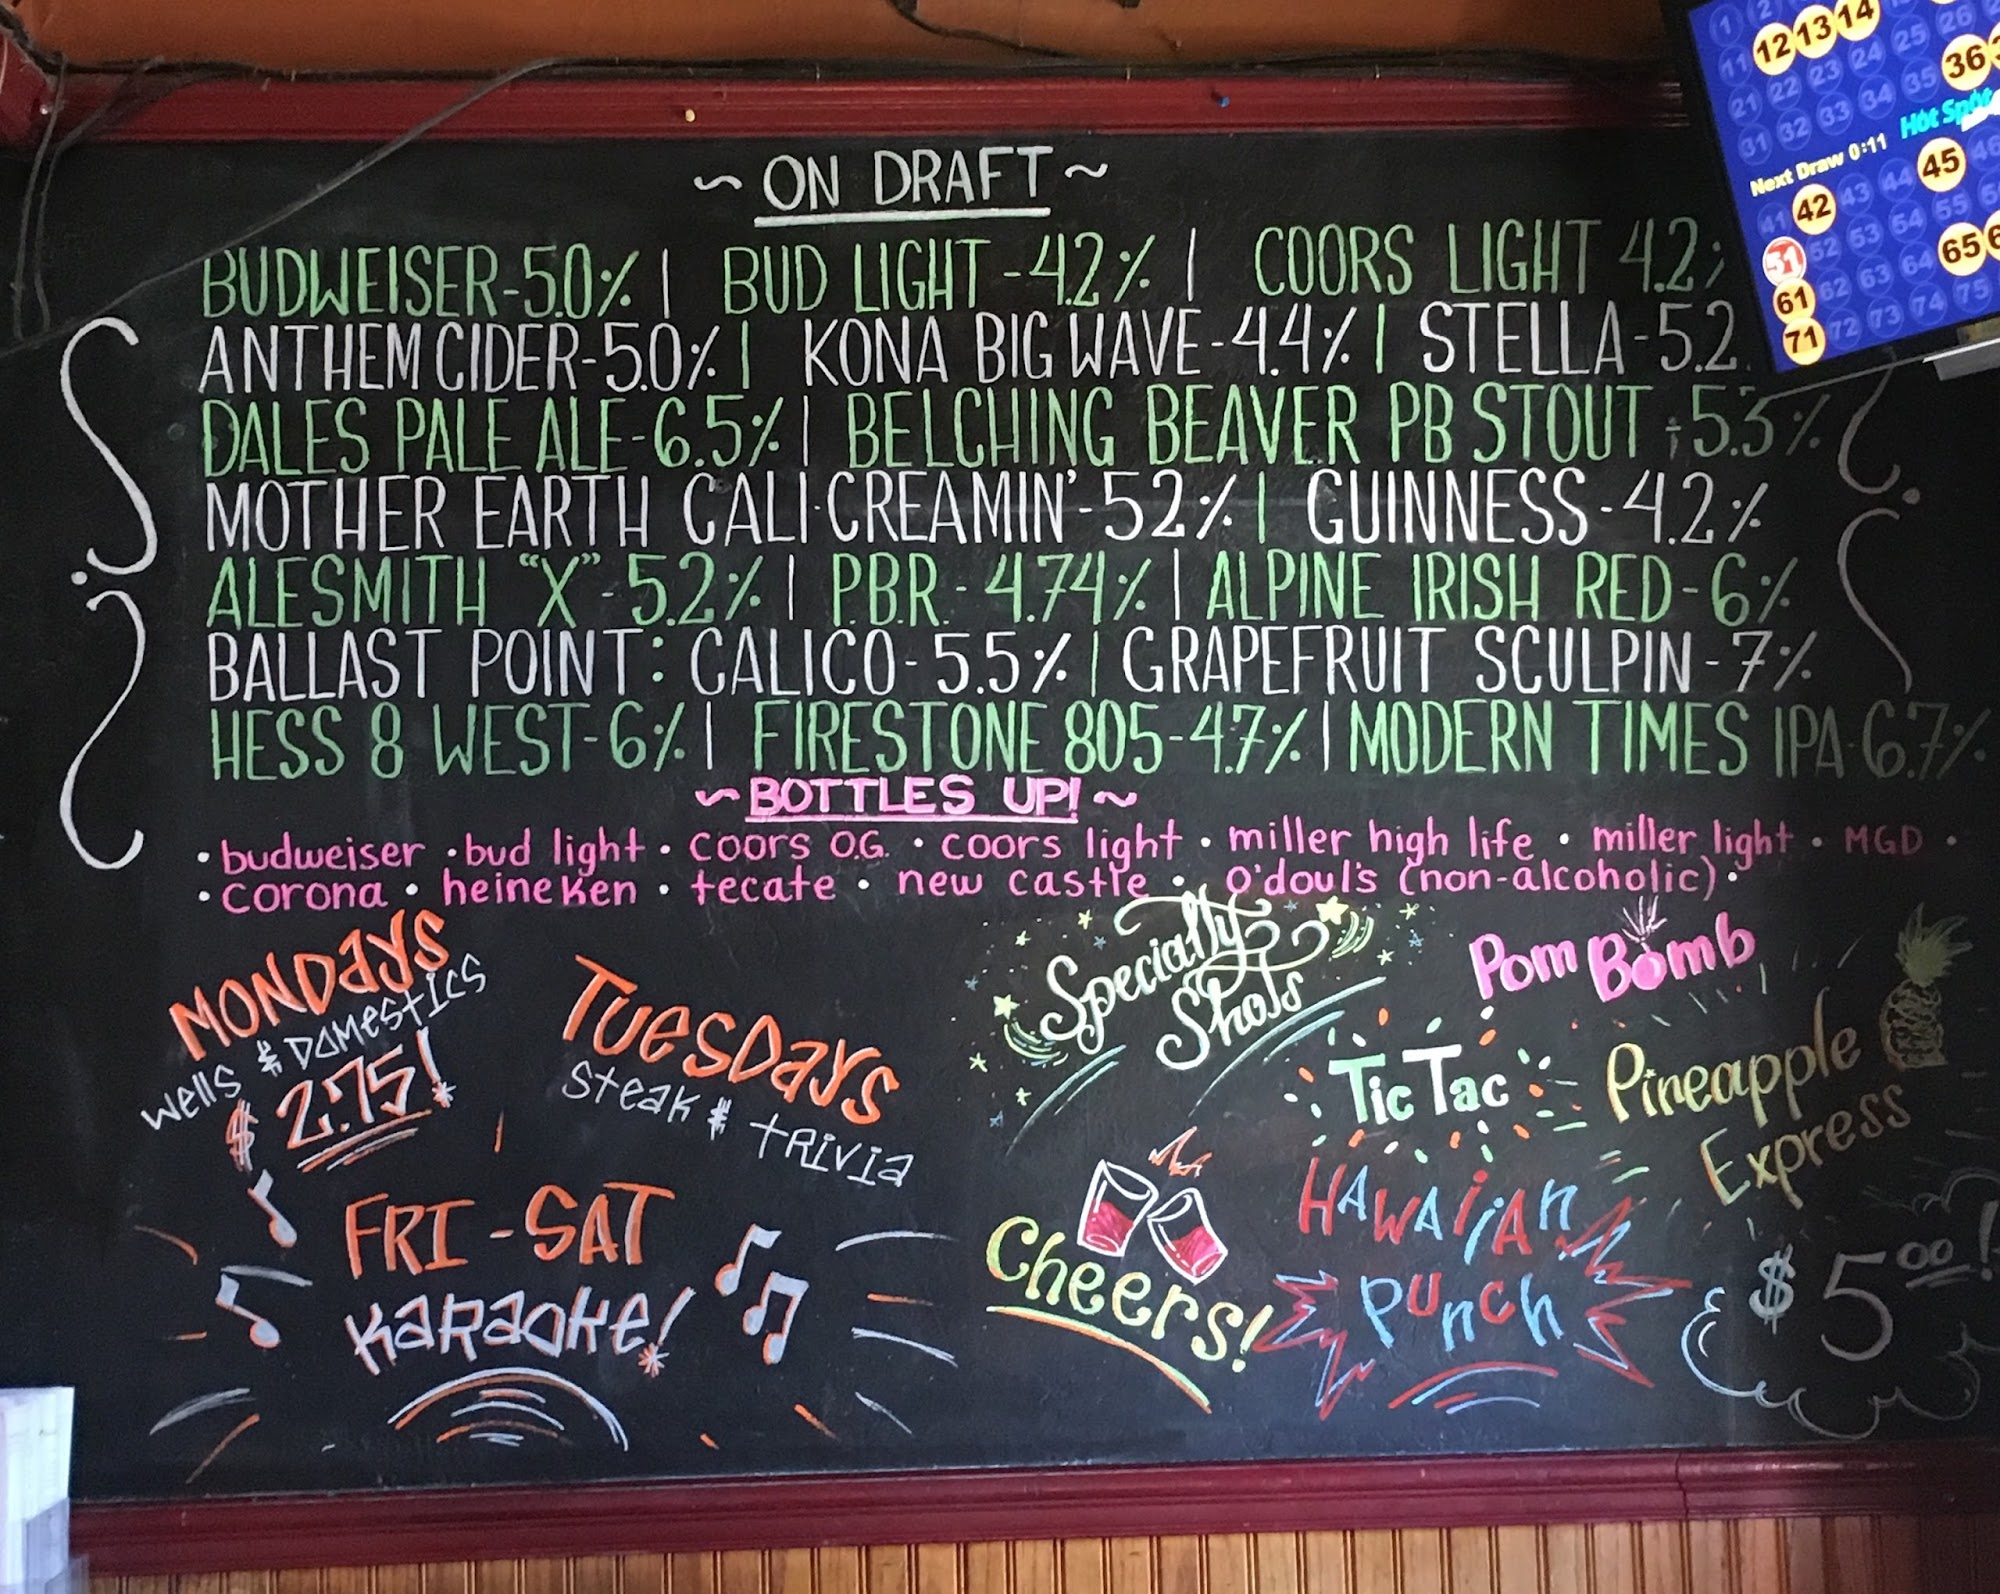 ~ ON DRAFT ~
BUDWEISER-5.0% | BUD LIGHT-4.2% | COORS LIGHT 4.2%
ANTHEM CIDER-5.0% | KONA BIG WAVE-4.4% | STELLA-5.2
DALES PALE ALE-6.5% | BELCHING BEAVER PB STOUT-5.3%
MOTHER EARTH CALI·CREAMIN'-5.2% | GUINNESS-4.2%
ALESMITH "X"-5.2% | P.B.R.-4.74% | ALPINE IRISH RED-6%
BALLAST POINT: CALICO-5.5% | GRAPEFRUIT SCULPIN-7%
HESS 8 WEST-6% | FIRESTONE 805-4.7% | MODERN TIMES IPA-6.7%
~ BOTTLES UP! ~
• budweiser • bud light • coors O.G. • coors light • miller high life • miller light • MGD •
• corona • heineken • tecate • new castle • o'doul's (non-alcoholic) •
MONDAYS
Wells & DOMESTICS
$2.75!
TUESDAYS
Steak & TRIVIA
FRI-SAT
KARAOKE!
Specialty
Shots
Pom Bomb
Tic Tac
Pineapple
Express
HAWAIIAN
PUNCH
Cheers!
$5.00!
1 2
12 13 14
11 22 23 24 25 26
21 32 33 34 35 36
31
Next Draw 0:11 Hot Spot
41 42 43 44 45 46
51 52 53 54 55
61 62 63 64 65
71 72 73 74 75